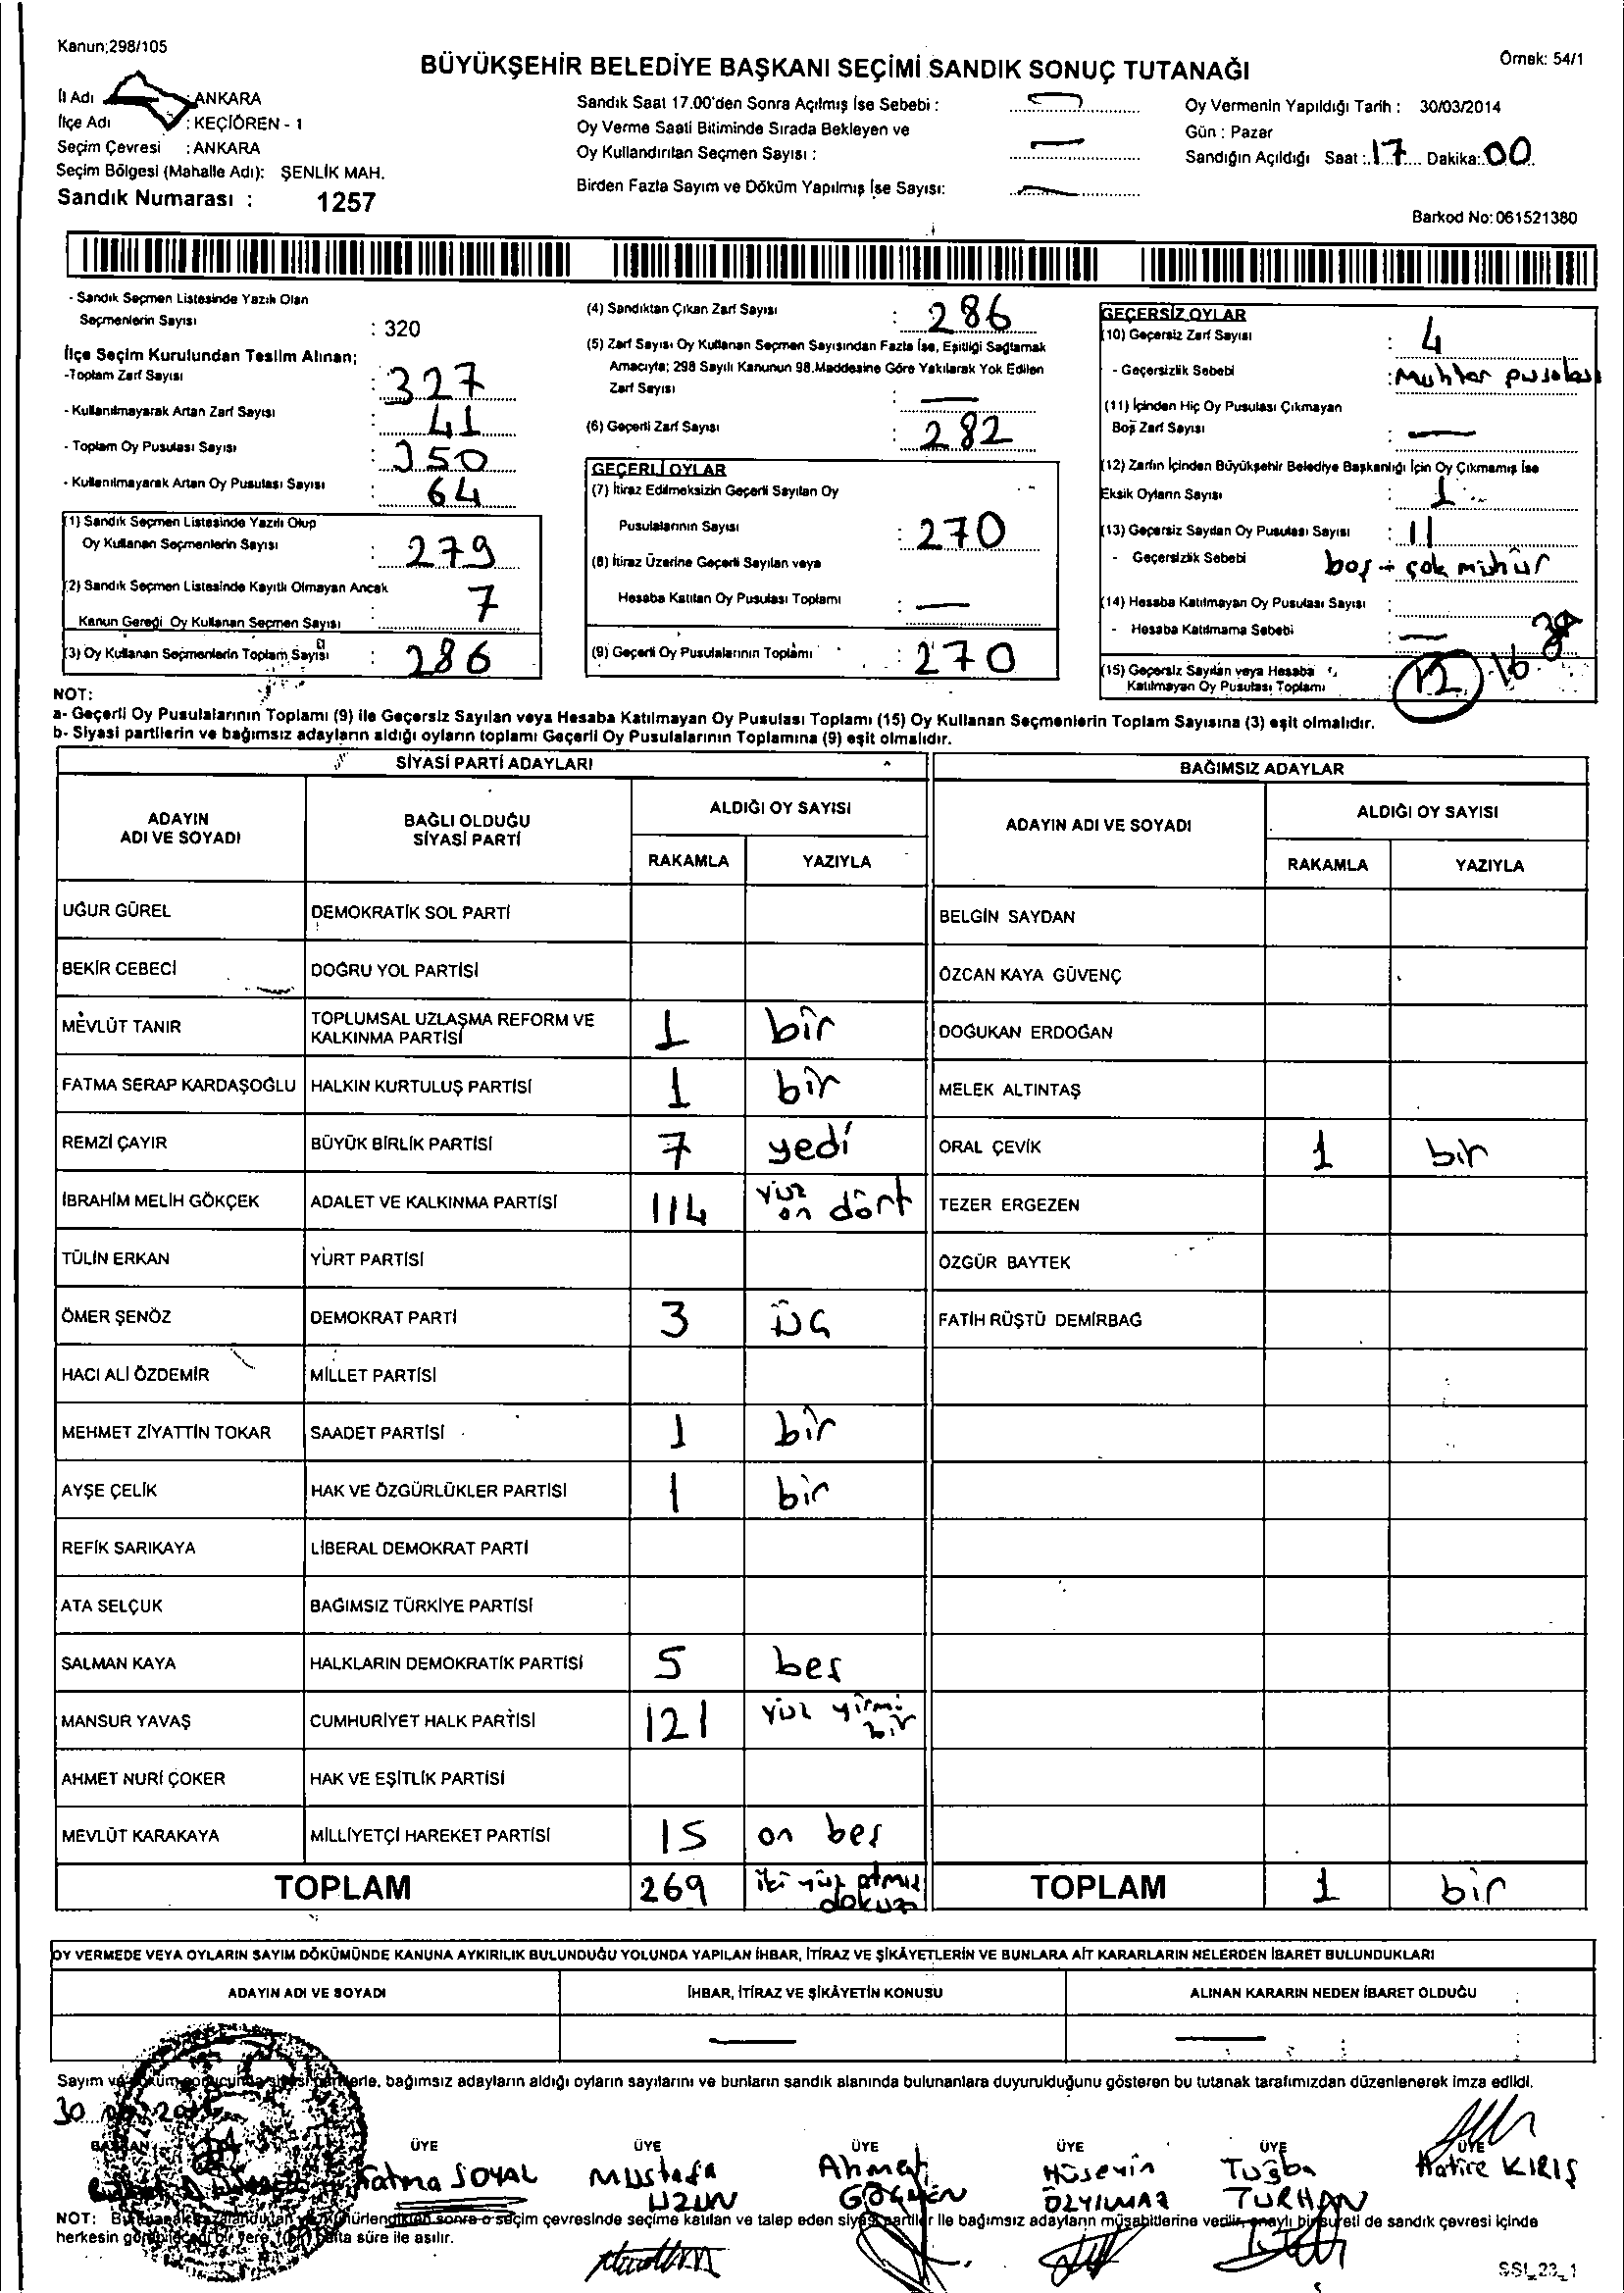 Kanun;298/105
Örnek: 54/1
BÜYÜKŞEHİR BELEDİYE BAŞKANI SEÇİMİ SANDIK SONUÇ TUTANAĞI
İl Adı : ANKARA
İlçe Adı : KEÇİÖREN - 1
Seçim Çevresi : ANKARA
Seçim Bölgesi (Mahalle Adı): ŞENLİK MAH.
Sandık Numarası : 1257
Sandık Saat 17.00'den Sonra Açılmış İse Sebebi : —
Oy Verme Saati Bitiminde Sırada Bekleyen ve
Oy Kullandırılan Seçmen Sayısı : —
Birden Fazla Sayım ve Döküm Yapılmış İse Sayısı: —
Oy Vermenin Yapıldığı Tarih : 30/03/2014
Gün : Pazar
Sandığın Açıldığı Saat : 17 Dakika: 00
Barkod No: 061521380
- Sandık Seçmen Listesinde Yazılı Olan
Seçmenlerin Sayısı : 320
İlçe Seçim Kurulundan Teslim Alınan;
-Toplam Zarf Sayısı : 327
- Kullanılmayarak Artan Zarf Sayısı : 41
- Toplam Oy Pusulası Sayısı : 350
- Kullanılmayarak Artan Oy Pusulası Sayısı : 64
(1) Sandık Seçmen Listesinde Yazılı Olup
Oy Kullanan Seçmenlerin Sayısı : 279
(2) Sandık Seçmen Listesinde Kayıtlı Olmayan Ancak
Kanun Gereği Oy Kullanan Seçmen Sayısı : 7
(3) Oy Kullanan Seçmenlerin Toplam Sayısı : 286
(4) Sandıktan Çıkan Zarf Sayısı : 286
(5) Zarf Sayısı Oy Kullanan Seçmen Sayısından Fazla İse, Eşitliği Sağlamak
Amacıyla; 298 Sayılı Kanunun 98.Maddesine Göre Yakılarak Yok Edilen
Zarf Sayısı : —
(6) Geçerli Zarf Sayısı : 282
GEÇERLİ OYLAR
(7) İtiraz Edilmeksizin Geçerli Sayılan Oy
Pusulalarının Sayısı : 270
(8) İtiraz Üzerine Geçerli Sayılan veya
Hesaba Katılan Oy Pusulası Toplamı : —
(9) Geçerli Oy Pusulalarının Toplamı : 270
GEÇERSİZ OYLAR
(10) Geçersiz Zarf Sayısı : 4
- Geçersizlik Sebebi : Muhtar pusulası
(11) İçinden Hiç Oy Pusulası Çıkmayan
Boş Zarf Sayısı : —
(12) Zarfın İçinden Büyükşehir Belediye Başkanlığı İçin Oy Çıkmamış İse
Eksik Oyların Sayısı : 1
(13) Geçersiz Sayılan Oy Pusulası Sayısı : 11
- Geçersizlik Sebebi boş + çok mühür
(14) Hesaba Katılmayan Oy Pusulası Sayısı :
- Hesaba Katılmama Sebebi : —
(15) Geçersiz Sayılan veya Hesaba
Katılmayan Oy Pusulası Toplamı 12 16
NOT:
a- Geçerli Oy Pusulalarının Toplamı (9) ile Geçersiz Sayılan veya Hesaba Katılmayan Oy Pusulası Toplamı (15) Oy Kullanan Seçmenlerin Toplam Sayısına (3) eşit olmalıdır.
b- Siyasi partilerin ve bağımsız adayların aldığı oyların toplamı Geçerli Oy Pusulalarının Toplamına (9) eşit olmalıdır.
SİYASİ PARTİ ADAYLARI
BAĞIMSIZ ADAYLAR
ADAYIN ADI VE SOYADI
BAĞLI OLDUĞU SİYASİ PARTİ
ALDIĞI OY SAYISI
RAKAMLA YAZIYLA
ADAYIN ADI VE SOYADI
ALDIĞI OY SAYISI
RAKAMLA YAZIYLA
UĞUR GÜREL DEMOKRATİK SOL PARTİ BELGİN SAYDAN
BEKİR CEBECİ DOĞRU YOL PARTİSİ ÖZCAN KAYA GÜVENÇ
MEVLÜT TANIR TOPLUMSAL UZLAŞMA REFORM VE KALKINMA PARTİSİ 1 bir DOĞUKAN ERDOĞAN
FATMA SERAP KARDAŞOĞLU HALKIN KURTULUŞ PARTİSİ 1 bir MELEK ALTINTAŞ
REMZİ ÇAYIR BÜYÜK BİRLİK PARTİSİ 7 yedi ORAL ÇEVİK 1 bir
İBRAHİM MELİH GÖKÇEK ADALET VE KALKINMA PARTİSİ 114 yüz on dört TEZER ERGEZEN
TÜLİN ERKAN YURT PARTİSİ ÖZGÜR BAYTEK
ÖMER ŞENÖZ DEMOKRAT PARTİ 3 üç FATİH RÜŞTÜ DEMİRBAĞ
HACI ALİ ÖZDEMİR MİLLET PARTİSİ
MEHMET ZİYATTİN TOKAR SAADET PARTİSİ 1 bir
AYŞE ÇELİK HAK VE ÖZGÜRLÜKLER PARTİSİ 1 bir
REFİK SARIKAYA LİBERAL DEMOKRAT PARTİ
ATA SELÇUK BAĞIMSIZ TÜRKİYE PARTİSİ
SALMAN KAYA HALKLARIN DEMOKRATİK PARTİSİ 5 beş
MANSUR YAVAŞ CUMHURİYET HALK PARTİSİ 121 yüz yirmi bir
AHMET NURİ ÇOKER HAK VE EŞİTLİK PARTİSİ
MEVLÜT KARAKAYA MİLLİYETÇİ HAREKET PARTİSİ 15 on beş
TOPLAM 269 iki yüz atmış dokuz TOPLAM 1 bir
OY VERMEDE VEYA OYLARIN SAYIM DÖKÜMÜNDE KANUNA AYKIRILIK BULUNDUĞU YOLUNDA YAPILAN İHBAR, İTİRAZ VE ŞİKÂYETLERİN VE BUNLARA AİT KARARLARIN NELERDEN İBARET BULUNDUKLARI
ADAYIN ADI VE SOYADI İHBAR, İTİRAZ VE ŞİKÂYETİN KONUSU ALINAN KARARIN NEDEN İBARET OLDUĞU
— —
Sayım ve döküm sonucunda siyasi partilerle, bağımsız adayların aldığı oyların sayılarını ve bunların sandık alanında bulunanlara duyurulduğunu gösteren bu tutanak tarafımızdan düzenlenerek imza edildi.
30
BAŞKAN ÜYE ÜYE ÜYE ÜYE ÜYE ÜYE
Fatma SOYAL Mustafa UZUN Ahmet GÖÇMEN Hüseyin ÖZYILMAZ Tuğba TURHAN Hatice KIRIŞ
NOT: Bu tutanak imzalandıktan ve mühürlendikten sonra o seçim çevresinde seçime katılan ve talep eden siyasi partiler ile bağımsız adayların müşahitlerine verilir, onaylı bir sureti de sandık çevresi içinde
herkesin görebileceği bir yere, bir hafta süre ile asılır.
SSL_23_1